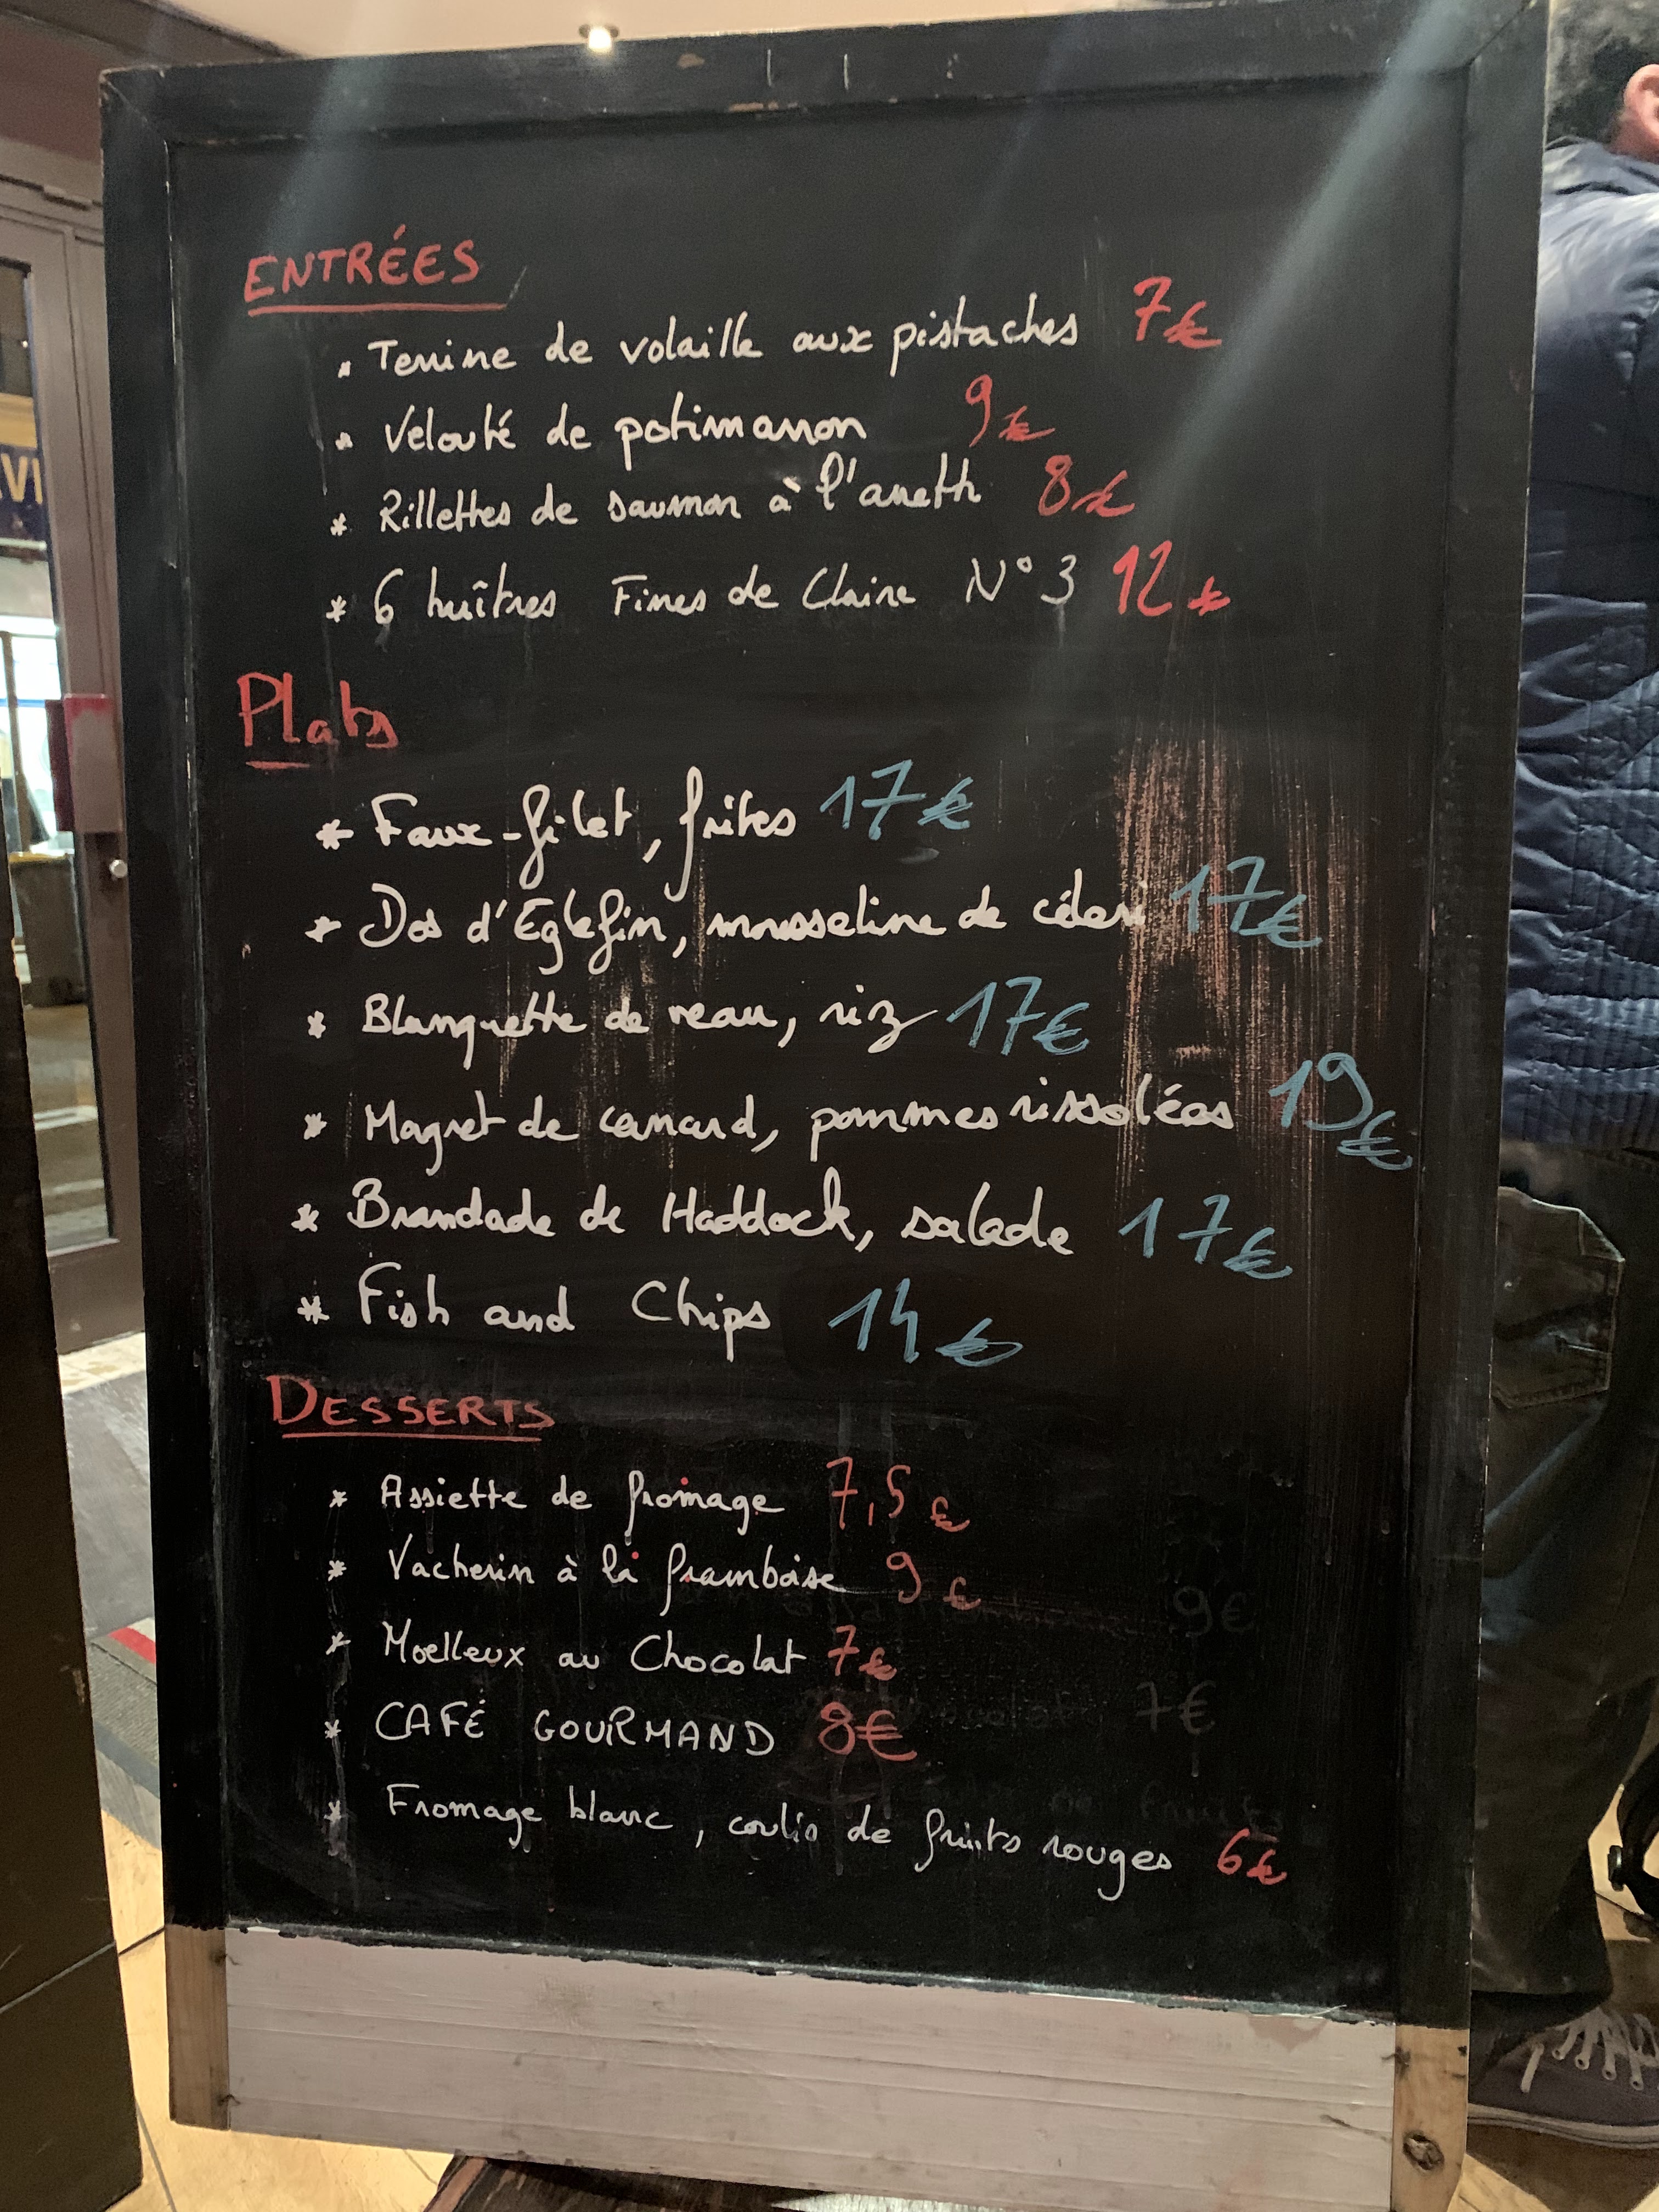 ENTRÉES
* Terrine de volaille aux pistaches 7€
* Velouté de potimarron 9€
* Rillettes de saumon à l'aneth 8€
* 6 huîtres Fines de Claire N°3 12€
Plats
* Faux-filet, frites 17€
* Dos d'Eglefin, mousseline de céleri 17€
* Blanquette de veau, riz 17€
* Magret de canard, pommes rissolées 19€
* Brandade de Haddock, salade 17€
* Fish and Chips 14€
DESSERTS
* Assiette de fromage 7,5€
* Vacherin à la framboise 9€
* Moelleux au Chocolat 7€
* CAFÉ GOURMAND 8€
* Fromage blanc, coulis de fruits rouges 6€